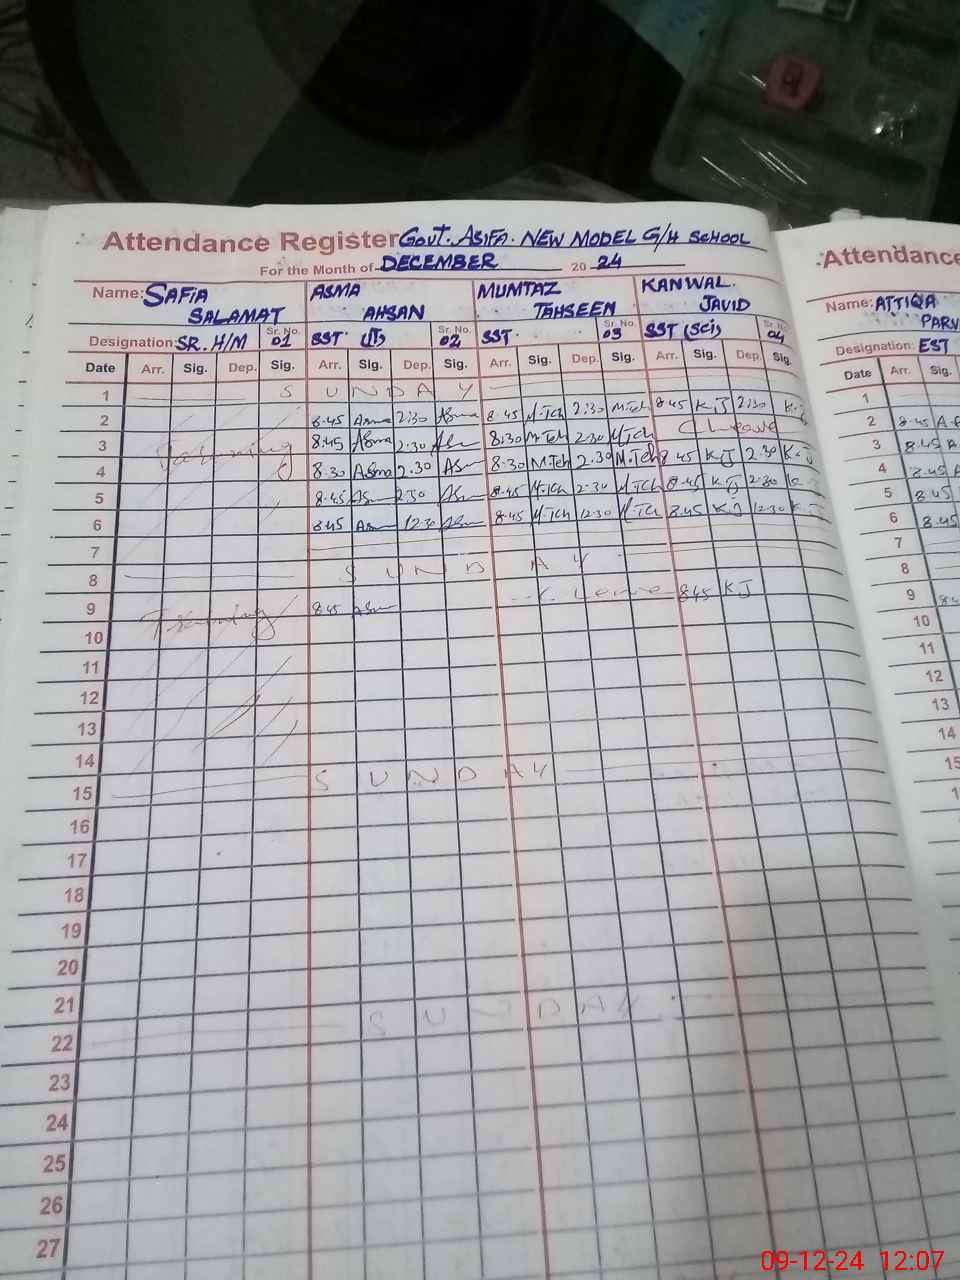 Attendance Register GOVT. ASIFA. NEW MODEL G/H SCHOOL
For the Month of DECEMBER 20 24
Name: SAFIA SALAMAT
ASMA AHSAN
MUMTAZ TAHSEEN
KANWAL JAVID
Designation: SR. H/M Sr. No. 01
SST (IT) Sr. No. 02
SST Sr. No. 03
SST (Sci) Sr. No. 04
Date Arr. Sig. Dep. Sig. Arr. Sig. Dep. Sig. Arr. Sig. Dep. Sig. Arr. Sig. Dep. Sig.
1 SUNDAY
2 8.45 Asma 2:30 Asma 8.45 M.Tch 2:30 M.Tch 8.45 K.J 2:30 K.J
3 8.45 Asma 2.30 8:30 M.Tch 2.30 M.Tch C leave
4 8.30 Asma 2.30 8.30 M.Teh 2.30 M.Tch 8.45 K.J 2.30 K.J
5 8.45 2.30 8.45 M.Tch 2.30 M.Tch 8.45 K.J 2.30
6 8.45 12.30 8.45 M.Tch 12.30 M.Tch 8.45 K.J 12.30 K.J
7
8 SUNDAY
9 Training 8.45 C. Leave 8.45 KJ
10
11
12
13
14
15 SUNDAY
16
17
18
19
20
21
22 SUNDAY
23
24
25
26
27
Attendance
Name: ATTIQA
PARV
Designation: EST
Date Arr. Sig.
1
2 8.45
3 8.45 A
4 8.45 A
5 8.45
6 8.45
7
8
9
10
11
12
13
14
15
09-12-24 12:07